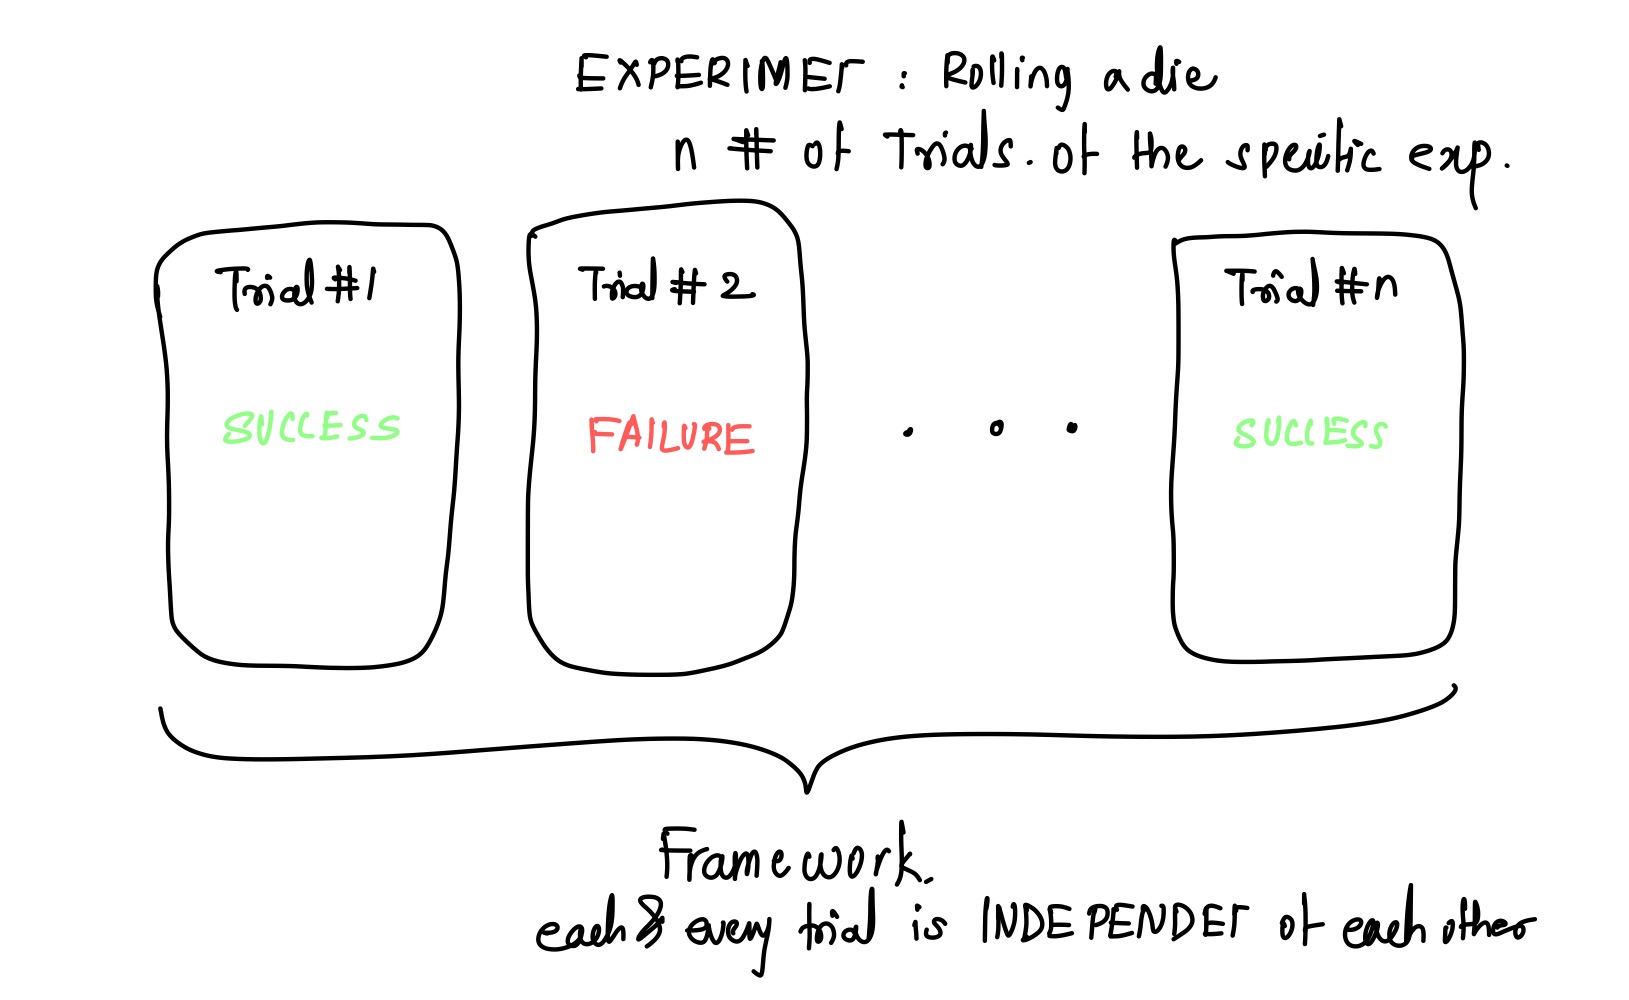 EXPERIMET : Rolling a die
n # of Trials. of the specific exp.
Trial #1
Trial # 2
Trial #n
SUCCESS
FAILURE
. . .
SUCCESS
Framework.
each & every trial is INDEPENDET of each other